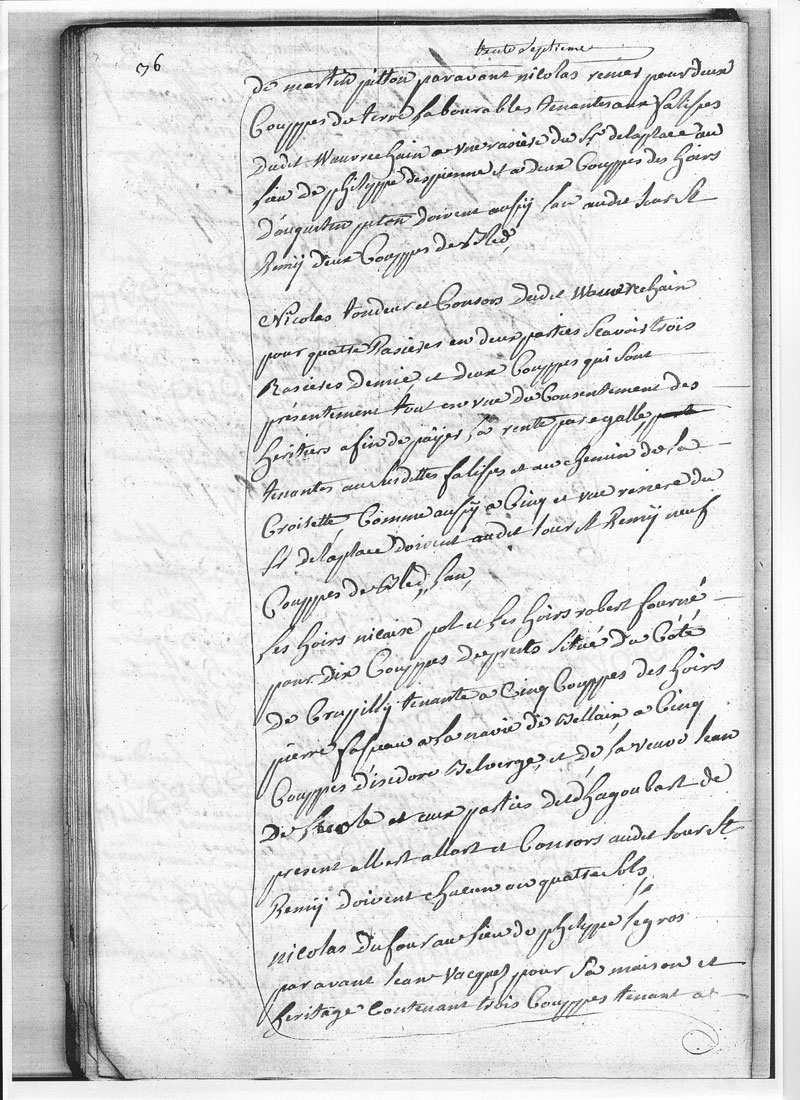 76
trente Septieme
de martin pitton paravant nicolas renier pour deux
Couppes de terre Labourables tenantes aux falises
dudit Wauvrechain a une rasiere du Sr. delaplace au
lieu de philippe despienne et a deux Couppes des hoirs
d'augustin piton doivent aussy l'an audit Jour St
Remij deux Couppes de Bled,
Nicolas tondeur et Consors dudit Wauvrechain
pour quatre Rasieres en deux parties Scavoir trois
Rasieres Demie et deux Couppes qui sont
présentement tout en une du Consentement des
heritiers afin de païjer la rente par egalle
tenantes aux susdittes falises et au chemin de la
Croisette, Comme aussij a Cinq et une rasiere du
Sr delaplace doivent audit Jour St Remij neuf
Couppes de Bled, L'an,
Les hoirs nicaise pot et Les hoirs robert fourné
pour Dix Couppes de prets Situé du Côté
De Crupilly tenante a Cinq Couppes des hoirs
pierre faspeau a la navie de Bellain a Cinq
Couppes d'isidore Delverge, et de la veuve Jean
De et aux parties de d'hagoubart de
present albert allart et Consors audit Jour St.
Remij doivent chacun an quatre Sols
nicolas Dufour au lieu de philippe legros
paravant Jean Vacques pour Sa maison et
heritage Contenant trois Couppes tenant a